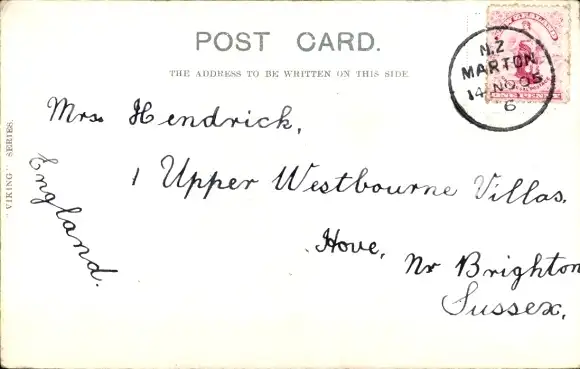 POST CARD.
THE ADDRESS TO BE WRITTEN ON THIS SIDE.
N.Z
MARTON
14 NO 05
6
NEW ZEALAND
ONE PENNY
Mrs Hendrick,
1 Upper Westbourne Villas.
Hove,
Nr Brighton
Sussex,
England.
"VIKING" SERIES.